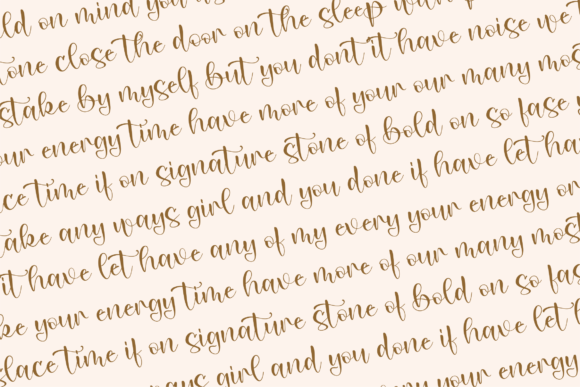 ld on mind you
tone close the door on the sleep with
stake by myself but you dont it have noise we
our energy time have more of your our many mos
lace time if on signature stone of bold on so fase
take any ways girl and you done if have let ha
it have let have any of my every your energy on
ke your energy time have more of our many most
slace time if on signature stone of bold on so fas
ways girl and you done if have let
any your energy